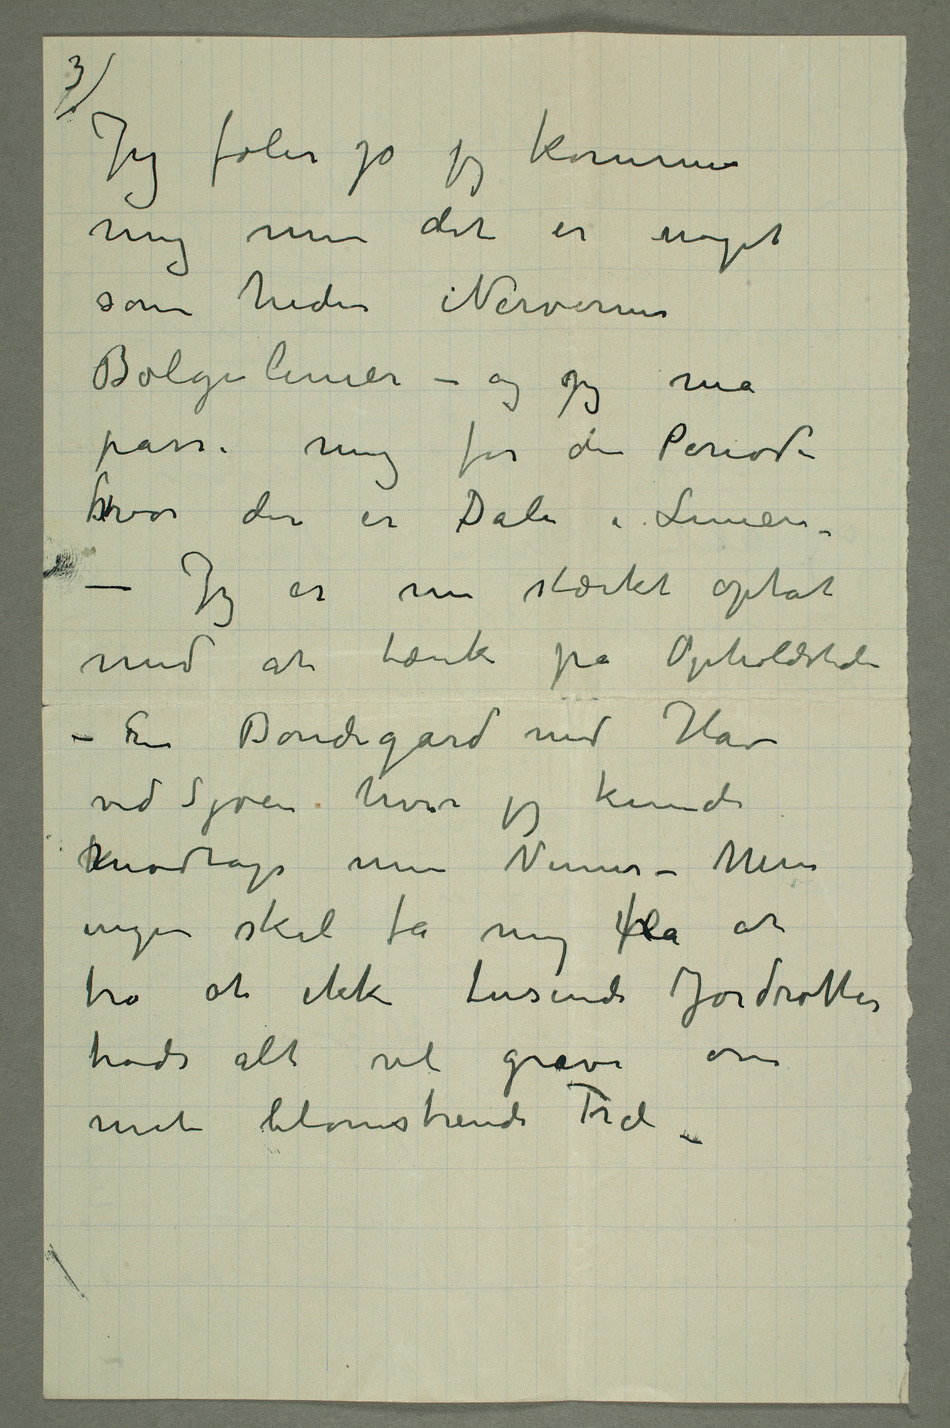 3)
Jeg føler jo jeg kommer
mig men det er noget
som heder Nervernes
Bølgelinier – og jeg må
passe mig for den Periode
hvor der er Dale i Linien –
– Jeg er nu stærkt optat
med at tænke på Opholdsstedet
– En Bondegård med Have
ved Sjøen hvor jeg kunde
modtage mine Venner – Men
ingen skal få mig fra at
tro at ikke tusende Jordrotter
trods alt vil grave om
mit blomstrende Træ –